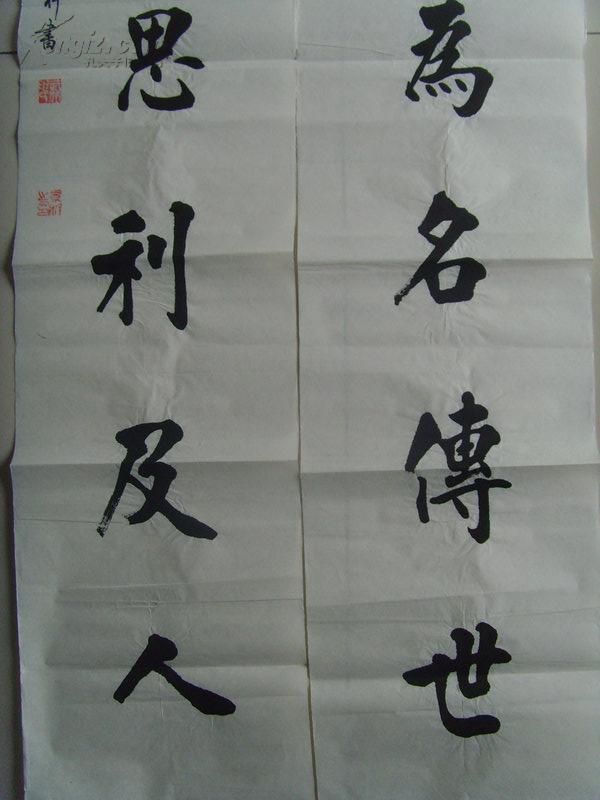 為名傳世
思利及人
書